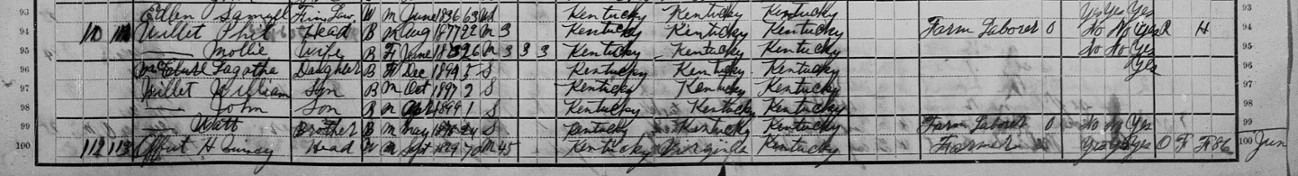 93 Edlen Samuel W M June 1836 63 Wd Kentucky Kentucky Kentucky Yes Yes Yes 93
94 110 Willet Phil Head B M Aug 1877 22 M 3 Kentucky Kentucky Kentucky Farm Laborer 0 No No Yes R H 94
95 Mollie Wife B F June 26 M 3 3 3 Kentucky Kentucky Kentucky No No Yes 95
96 Daughter B F Dec 1894 5 S Kentucky Kentucky Kentucky Yes 96
97 Willet William Son B M Oct 1897 2 S Kentucky Kentucky Kentucky 97
98 John Son B M 1899 1 S Kentucky Kentucky Kentucky 98
99 Watt Brother B M May S Kentucky Kentucky Kentucky Farm Laborer 0 No No Yes 99
100 112 113 Offut H Head W M Sept 1829 70 M 45 Kentucky Virginia Kentucky Farmer Yes Yes Yes O F F 86 100 Jun